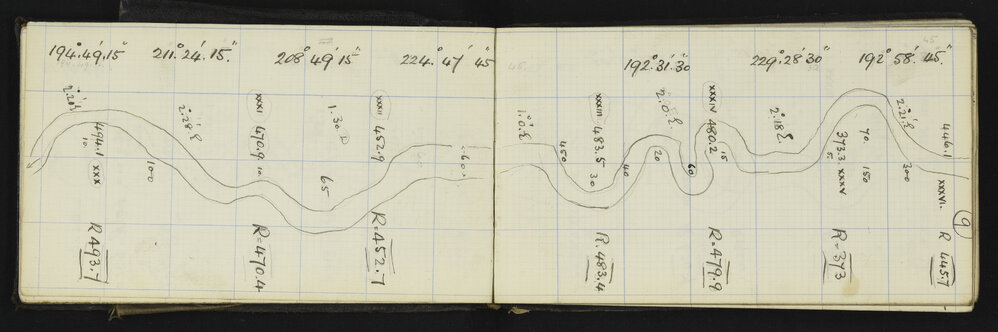 194°.49'.15"
211°.24'.15".
208°49'15"
224°.47'45"
192°.31'.30"
229°.28'30"
192°58'.45"
494.1 XXX
70
100
XXXI 470.9
10
65
1.30
XXXII 452.9
60
450
XXXIII 483.5
30
40
20
60
XXXIV 480.2
15
373.3 XXXV
5
70
150
300
446.1
XXXVI.
9
R 493.7
R=470.4
R=452.7
R. 483.4
R=479.9
R=373
R 445.7